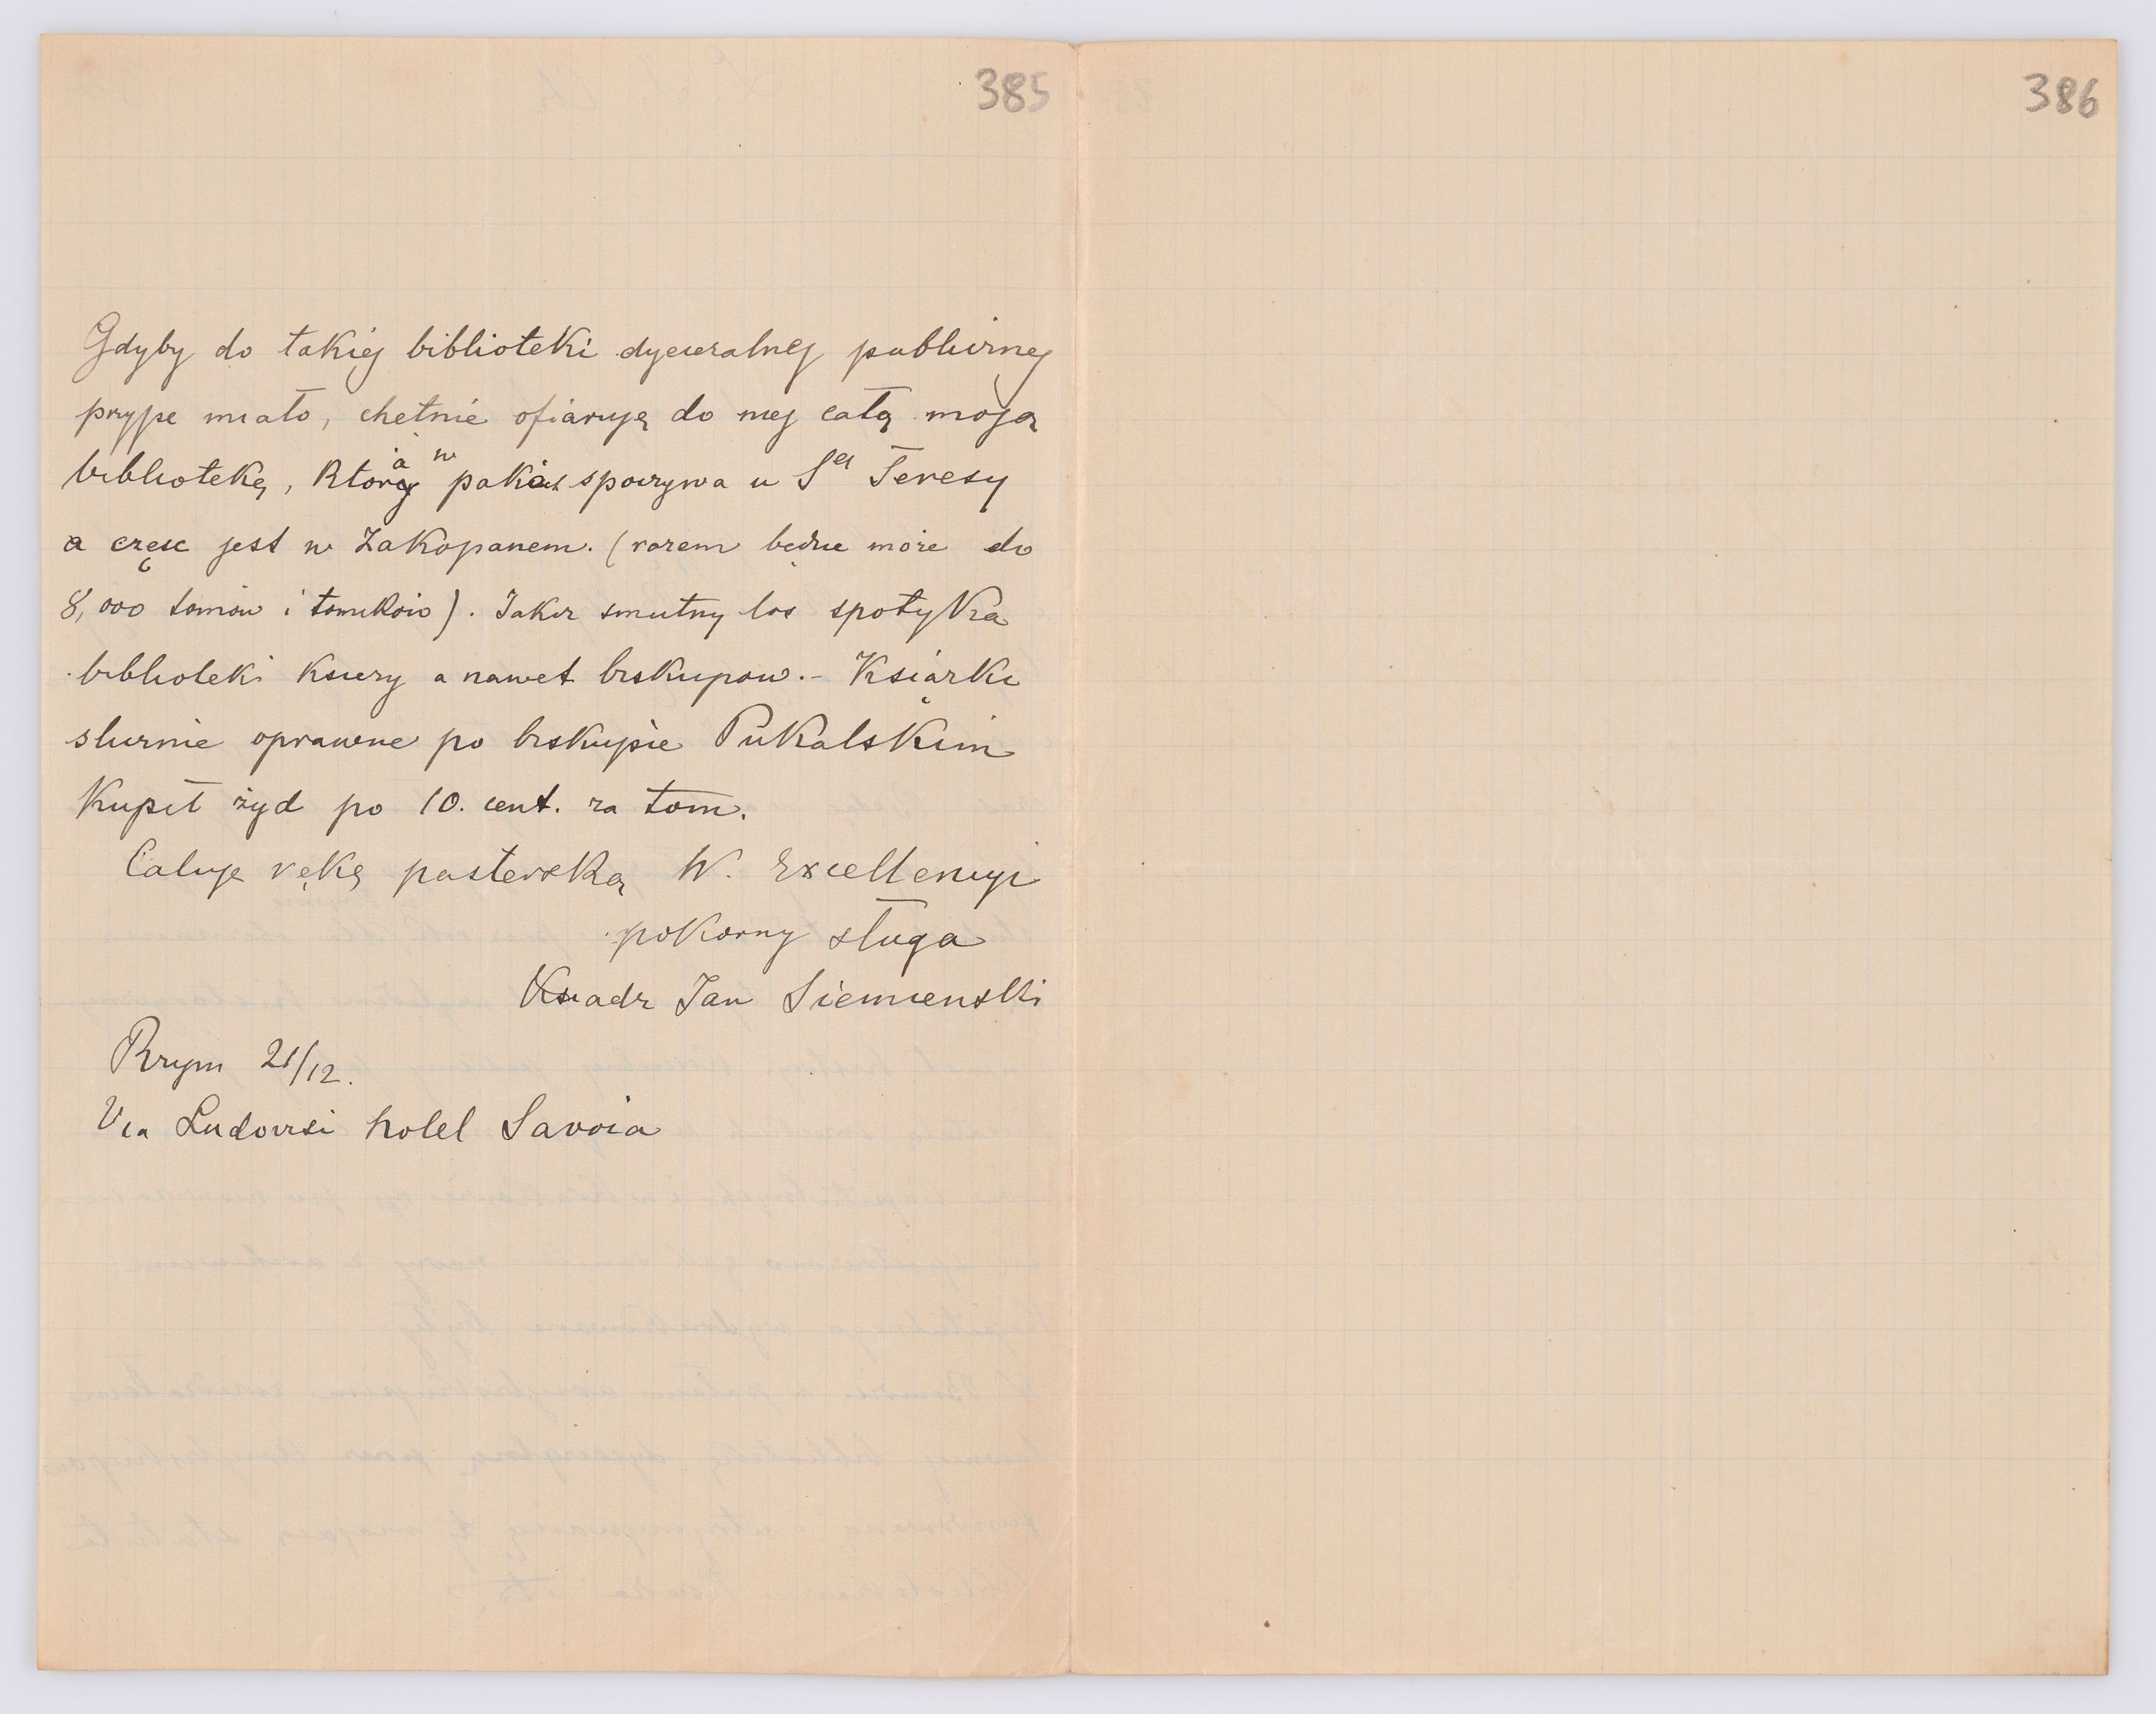 385
386
Gdyby do takiej biblioteki dyecezalnej publicznej
przyjść miało, chętnie ofiaruję do niej całą moją
bibliotekę, która w pakach spoczywa u Sej Teresy
a częsc jest w Zakopanem. (razem będzie może do
8,000 tomów i tomików). Jakiż smutny los spotyka
biblioteki księży a nawet biskupow. – Książki
slicznie oprawne po biskupie Pukalskim
Kupił żyd po 10. cent. za tom.
Całuje rękę pasterską W. Excellencyi
pokorny sługa
Ksiądz Jan Siemienski
Rzym 21/12.
Via Ludovisi hotel Savoia